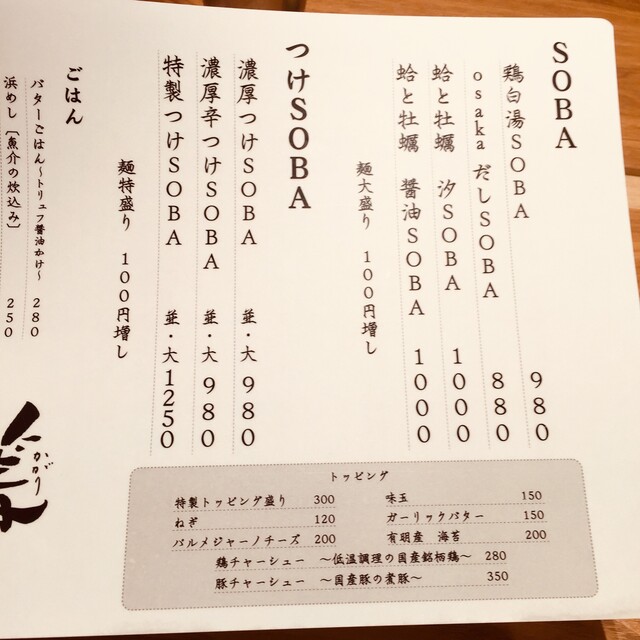 SOBA
鶏白湯SOBA 980
osaka だしSOBA 880
蛤と牡蠣 汐SOBA 1000
蛤と牡蠣 醤油SOBA 1000
麺大盛り 100円増し
つけSOBA
濃厚つけSOBA 並・大 980
濃厚辛つけSOBA 並・大 980
特製つけSOBA 並・大 1250
麺特盛り 100円増し
ごはん
バターごはん~トリュフ醤油かけ~ 280
浜めし〔魚介の炊込み〕 250
かがり
トッピング
特製トッピング盛り 300
味玉 150
ねぎ 120
ガーリックバター 150
パルメジャーノチーズ 200
有明産 海苔 200
鶏チャーシュー ~低温調理の国産銘柄鶏~ 280
豚チャーシュー ~国産豚の煮豚~ 350